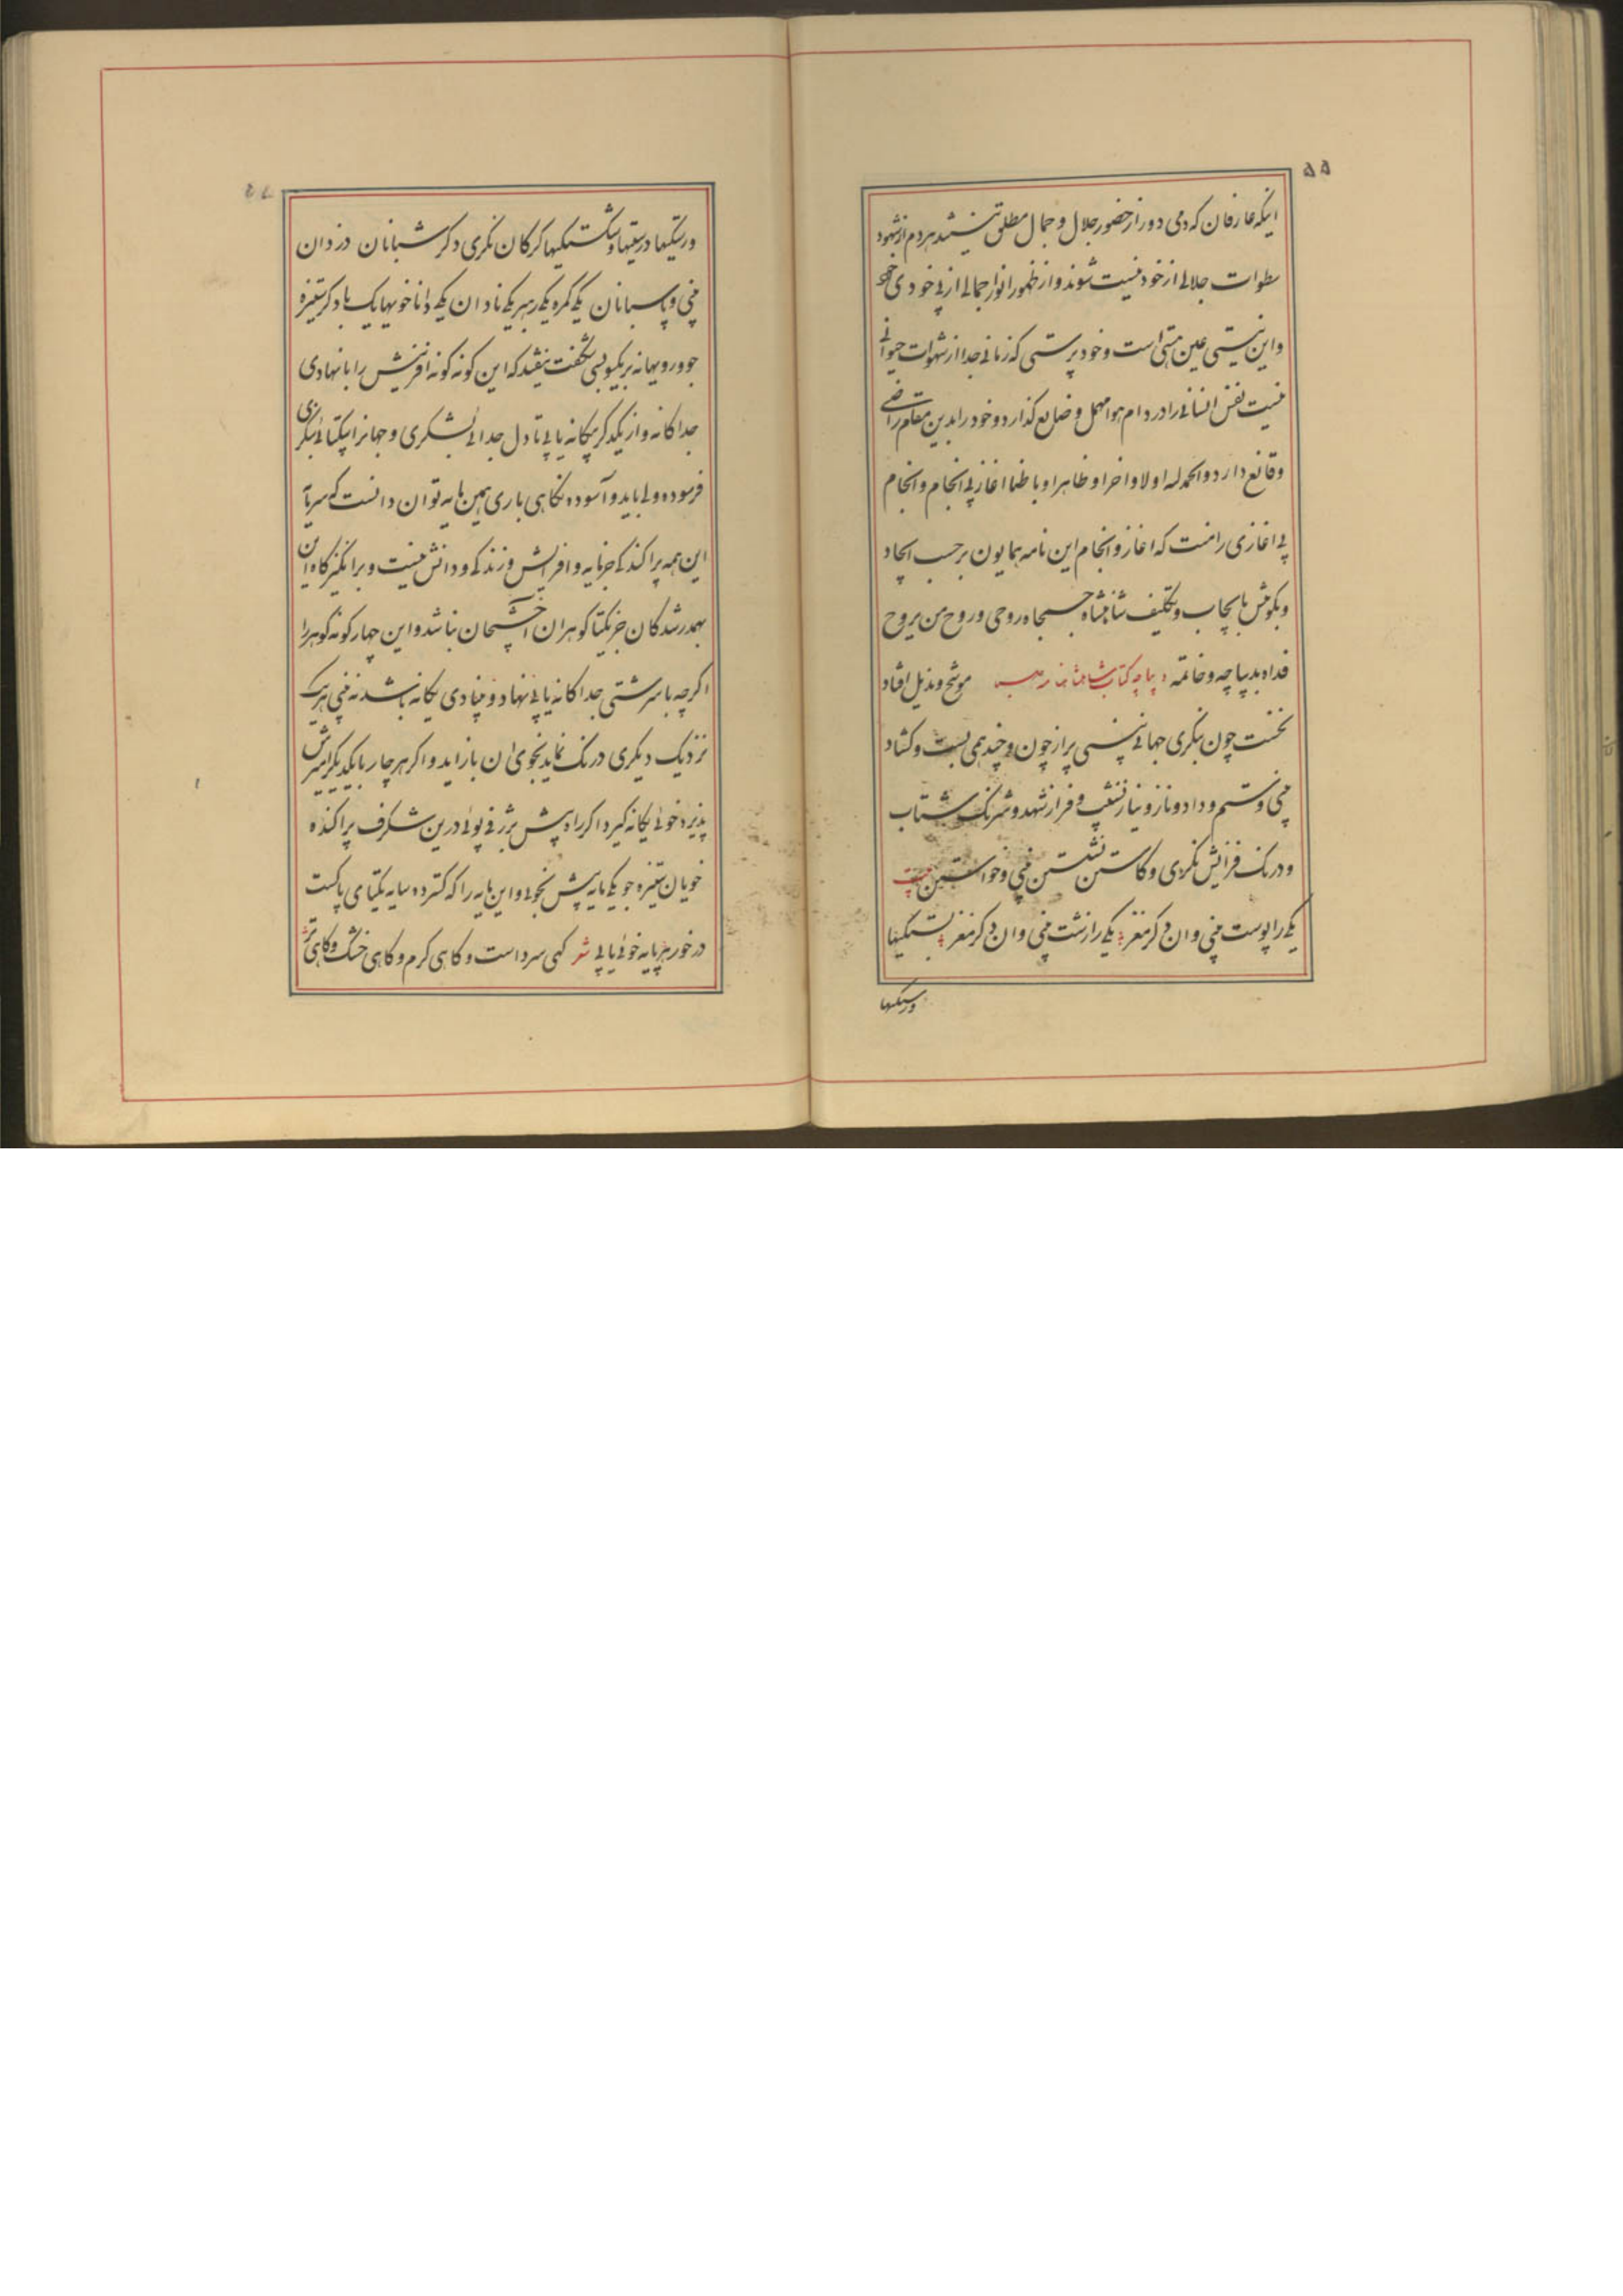 ۵۵
اینکه عارفان که دمی دور از حضور جلال و جمال مطلق ننشینند هر دم از شهود
سطوات جلالی از خود نیست شوند و از ظهور انوار جمالی از بی خودی
و این نیستی عین هستی است و خودپرستی که زمانی جدا از شهوات حیوانی
نیست نفس انسانی را در دام هوا مهمل و ضایع گذارد و خود را بدین مقام راضی
و قانع دارد و الحمد له اولا و اخرا و ظاهرا و باطنا اغاز بی انجام و انجام
بی اغازی راست که اغاز و انجام این نامه همایون بر حسب ایجاد
و بکوشش بایجاب و تکلیف شاهنشاه جمجاه روحی و روح من یروح
فداه بدیباچه و خاتمه دیباچه کتاب موشح و مذیل افتاد
نخست چون بنگری جهانی بینی پر از چون و چند همی بست و کشاد
بینی و ستم و داد و ناز و نیاز نشیب و فراز شهد و شرنک شتاب
و درنک فزایش نکری و کاستن نشستن بینی و خواستن
یکی را پوست بینی وان دکر مغز یکی را زشت بینی وان دکر نغز بستکیها
ورستکیها
ورستکیها درستیها و شکستکیها کرکان نکری دکر شبانان دزدان
بینی و پاسبانان یکی کمره یکی رهبر یکی نادان یکی دانا خویها یک با دکر ستیزه
جو و رویها نه بریکسو بسی شکفت نیفتد که این کونه کونه افرینش را با نهادی
جداکانه و از یکدکر بیکانه یابی تا دل جدائی بشکری و جهانرا بیکتائی بنکری
فرسوده ولی باید و آسوده نکاهی باری همین مایه توان دانست که سرمایه
این همه پراکندکی جز مایه و افزایش و زندکی و دانش نیست و برانکیزکاه این
بهمدرشدکان جز یکتا کوهران آخشیجان نباشد و این چهار کونه کوهر را
اکرچه با سرشتی جداکانه یابی نهاد و بنیادی یکانه باشد نه بینی هر یک
نزدیک دیکری درنک نماید بخوی ان بازاید و اکر هر چار با یکدیکر امیزش
پذیرد خوئی یکانه کیرد اکر راه بینش بژرفی پوئی درین شکرف پراکنده
خویان ستیزه جو یکی مایه بیش نجوئی و این مایه را که کسترده سایه یکتای پاکست
در خور هر پایه خوئی یابی شعر کهی سرد است و کاهی کرم و کاهی خشک و کاهی تر